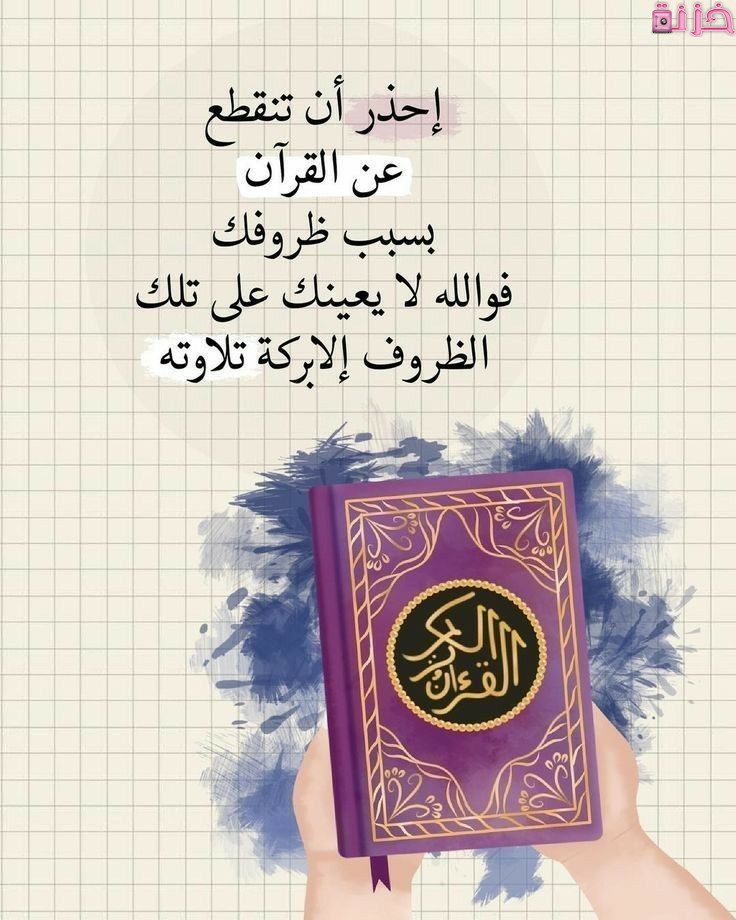 خزنة
إحذر أن تنقطع
عن القرآن
بسبب ظروفك
فوالله لا يعينك على تلك
الظروف إلابركة تلاوته
القرءان الكريم